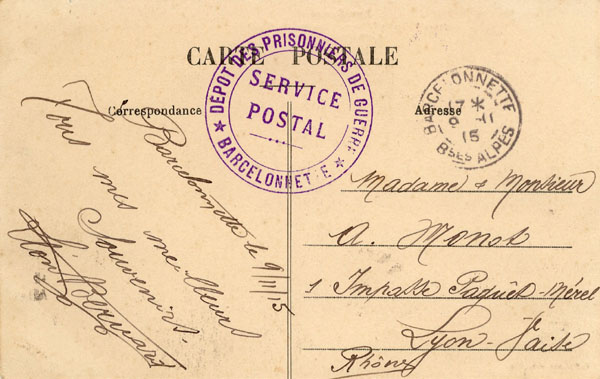 CARTE POSTALE
Correspondance
Adresse
★ DÉPÔT DES PRISONNIERS DE GUERRE ★
BARCELONNETTE
SERVICE
POSTAL
BARCELONNETTE
17 *
9 - 11
15
BSES ALPES
Barcelonnette le 9/11/15
Tous mes meilleurs
Souvenirs.
Madame & Monsieur
A. Monot
1 Impasse Paquet-Mérel
Lyon-Vaise
Rhône